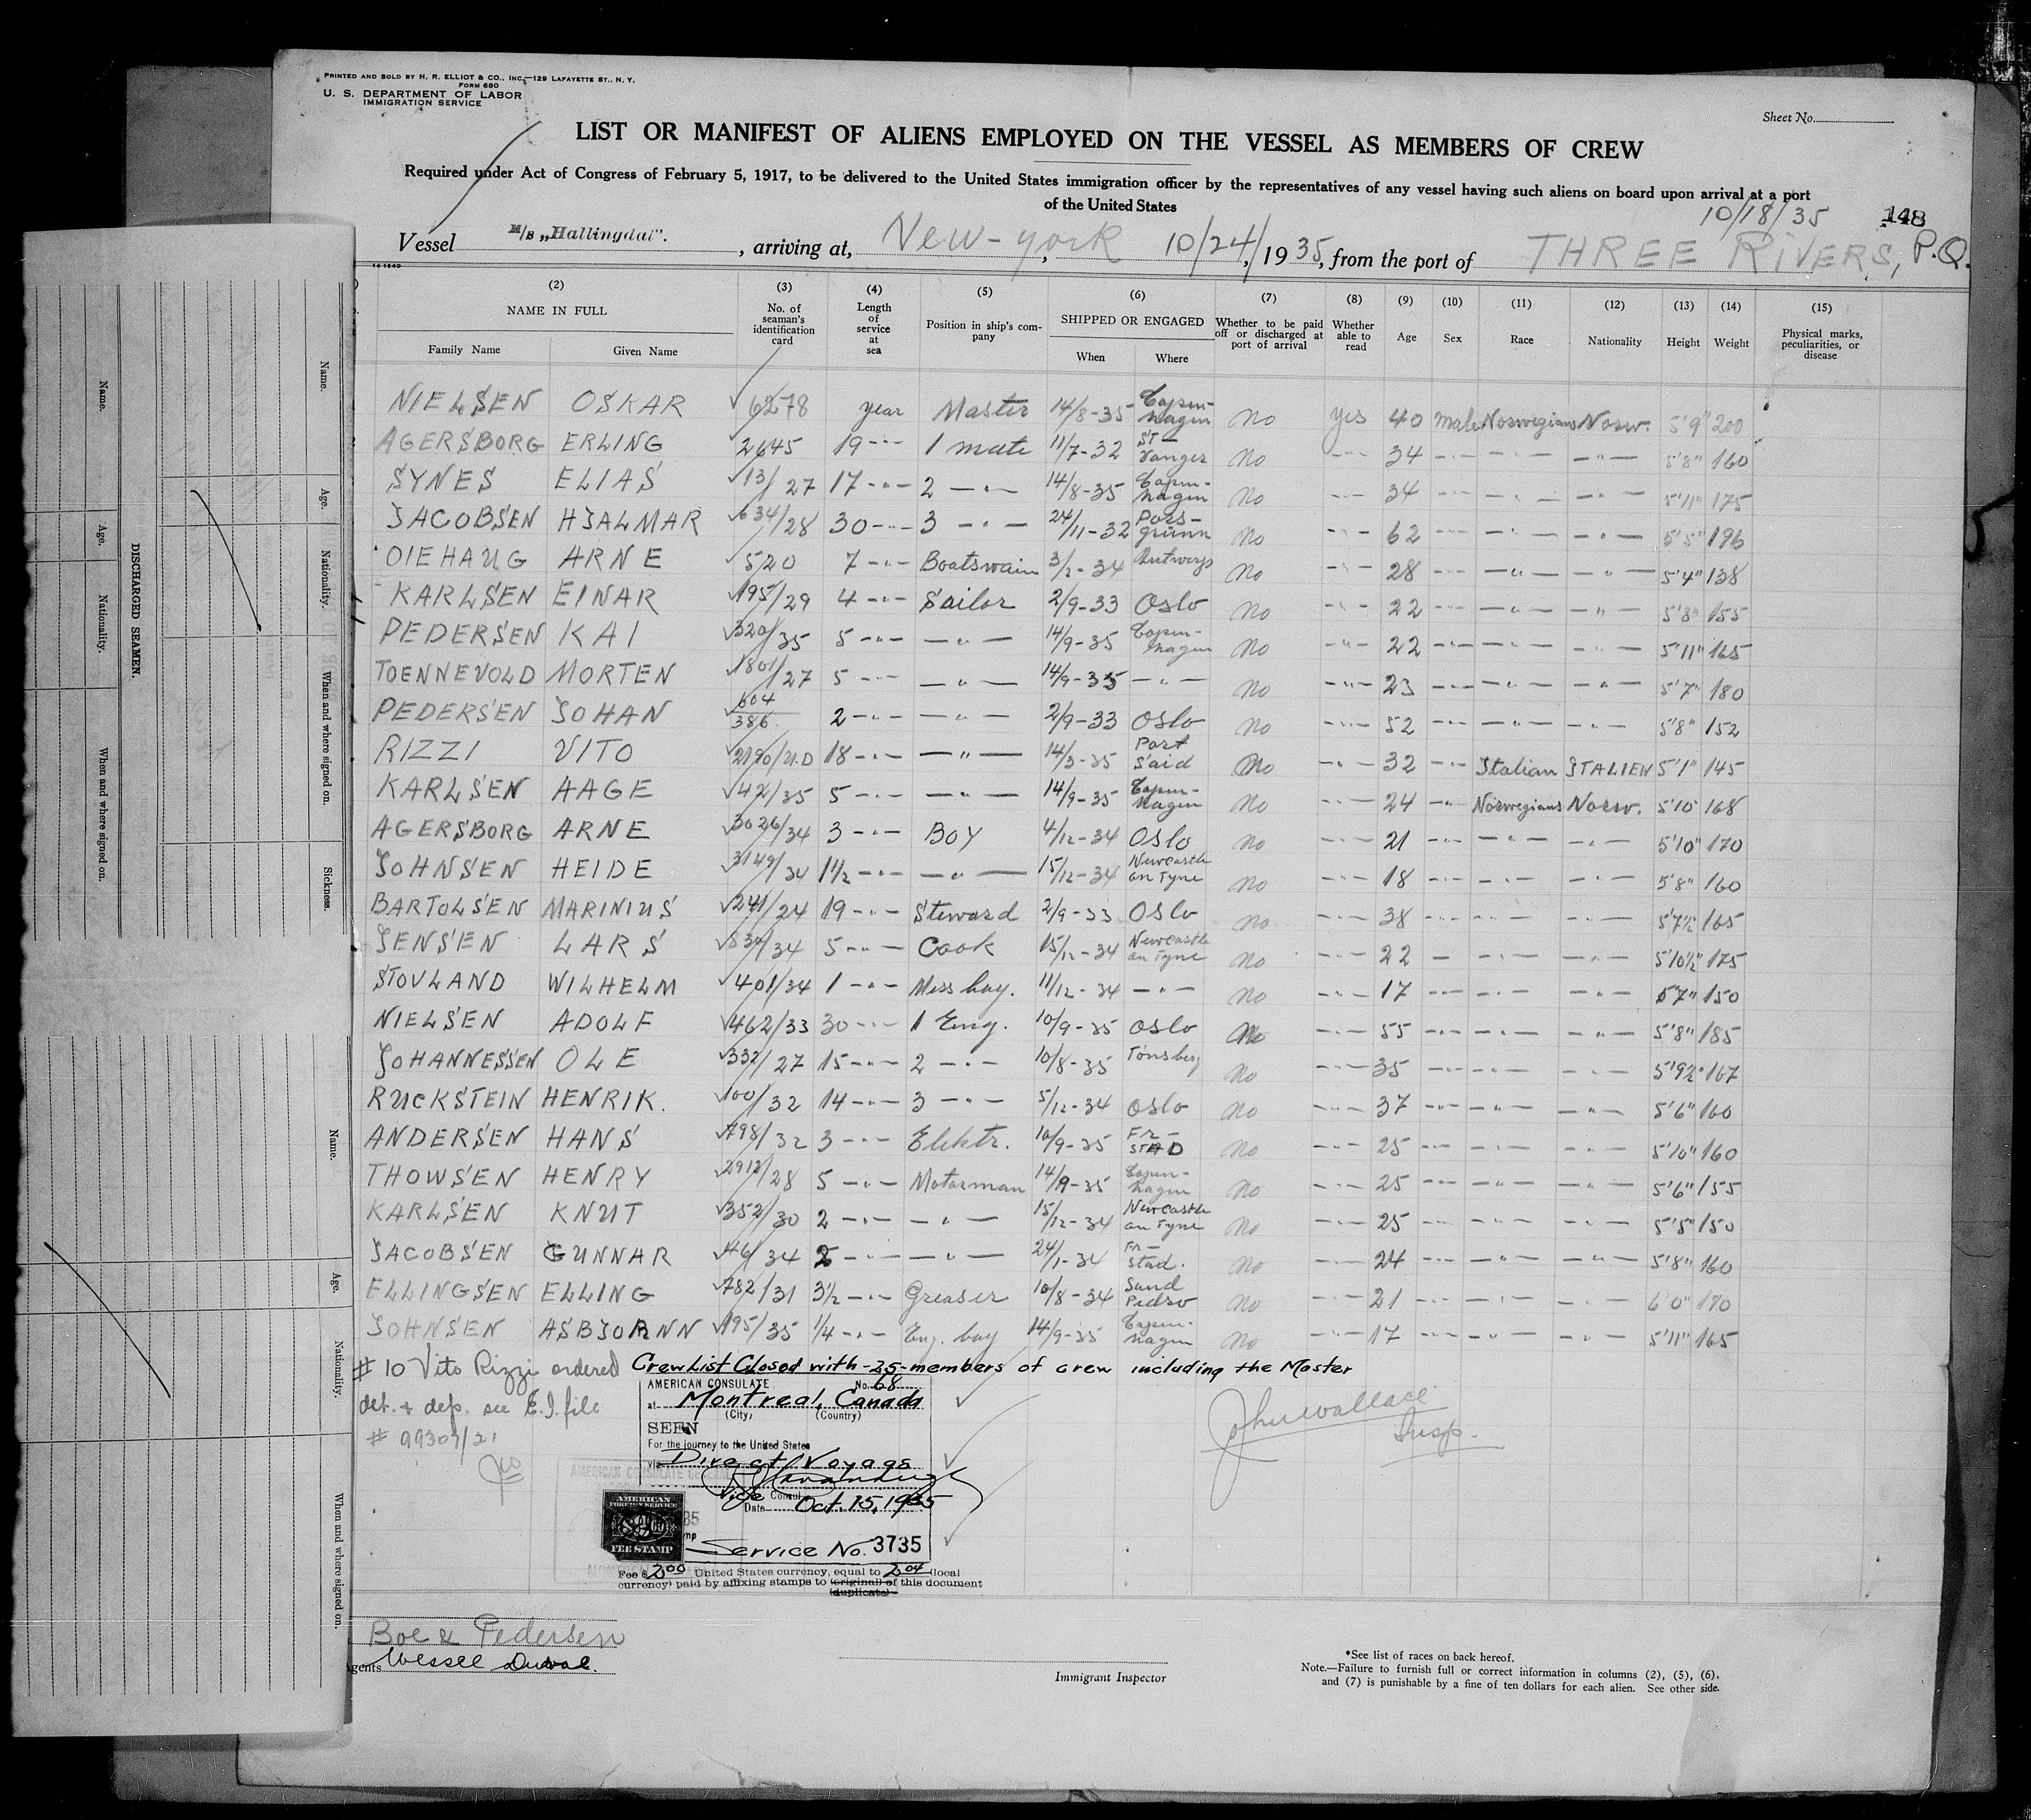 PRINTED AND SOLD BY H. R. ELLIOT & CO., INC.—129 LAFAYETTE ST., N. Y.
FORM 680
U. S. DEPARTMENT OF LABOR
IMMIGRATION SERVICE
Sheet No.
LIST OR MANIFEST OF ALIENS EMPLOYED ON THE VESSEL AS MEMBERS OF CREW
Required under Act of Congress of February 5, 1917, to be delivered to the United States immigration officer by the representatives of any vessel having such aliens on board upon arrival at a port
of the United States
10/18/35 148
Vessel M/S „Hallingdal". , arriving at, New-york, 10/24/, 1935, from the port of THREE RIVERS, P.Q.
14-1240
(2) (3) (4) (5) (6) (7) (8) (9) (10) (11) (12) (13) (14) (15)
NAME IN FULL No. of seaman's identification card Length of service at sea Position in ship's company SHIPPED OR ENGAGED Whether to be paid off or discharged at port of arrival Whether able to read Age Sex Race Nationality Height Weight Physical marks, peculiarities, or disease
Family Name Given Name When Where
NIELSEN OSKAR 6278 year Master 14/8-35 Copen-hagen No Yes 40 Male Norwegians Norw. 5'9" 200
AGERSBORG ERLING 2645 19 -"- 1 mate 11/7-32 ST-vanger No -"- 34 -"- -"- -"- 5'8" 160
SYNES ELIAS 13/27 17 -"- 2 -"- 14/8-35 Copen-hagen No -"- 34 -"- -"- -"- 5'11" 175
JACOBSEN HJALMAR 634/28 30 -"- 3 -"- 24/11-32 Pors-grunn No -"- 62 -"- -"- -"- 5'5" 196
OIEHAUG ARNE 520 7 -"- Boatswain 3/2-34 Antwerp No -"- 28 -"- -"- -"- 5'4" 138
KARLSEN EINAR 195/29 4 -"- Sailor 2/9-33 Oslo No -"- 22 -"- -"- -"- 5'8" 155
PEDERSEN KAI 320/35 5 -"- -"- 14/9-35 Copen-hagen No -"- 22 -"- -"- -"- 5'11" 165
TOENNEVOLD MORTEN 1801/27 5 -"- -"- 14/9-35 -"- No -"- 23 -"- -"- -"- 5'7" 180
PEDERSEN JOHAN 604/386 2 -"- -"- 2/9-33 Oslo No -"- 52 -"- -"- -"- 5'8" 152
RIZZI VITO 2190/U.D 18 -"- -"- 14/3-35 Port Said No -"- 32 -"- Italian ITALIEN 5'1" 145
KARLSEN AAGE 42/35 5 -"- -"- 14/9-35 Copen-hagen No -"- 24 -"- Norwegians Norw. 5'10 168
AGERSBORG ARNE 3026/34 3 -"- BOY 4/12-34 OSLO No -"- 21 -"- -"- -"- 5'10" 170
JOHNSEN HEIDE 3149/34 1 1/2 -"- -"- 15/12-34 Newcastle on Tyne No -"- 18 -"- -"- -"- 5'8" 160
BARTOLSEN MARINIUS 241/24 19 -"- Steward 2/9-33 OSLO No -"- 38 -"- -"- -"- 5'7½ 165
JENSEN LARS 830/34 5 -"- Cook 15/12-34 Newcastle on Tyne No -"- 22 - -"- -"- 5'10½" 175
STOVLAND WILHELM 401/34 1 -"- Mess boy. 11/12-34 -"- No -"- 17 -"- -"- -"- 5'7" 150
NIELSEN ADOLF 462/33 30 -"- 1 Eng. 10/9-35 OSLO No -"- 55 -"- -"- -"- 5'8" 185
JOHANNESSEN OLE 332/27 15 -"- 2 -"- 10/8-35 Tönsberg No -"- 35 -"- -"- -"- 5'9½" 167
RUCKSTEIN HENRIK. 100/32 14 -"- 3 -"- 5/12-34 OSLO No -"- 37 -"- -"- -"- 5'6" 160
ANDERSEN HANS 798/32 3 -"- Elektr. 10/9-35 Fr-STAD No -"- 25 -"- -"- -"- 5'10" 160
THOWSEN HENRY 2912/28 5 -"- Motorman 14/9-35 Copen-hagen No -"- 25 -"- -"- -"- 5'6" 155
KARLSEN KNUT 352/30 2 -"- -"- 15/12-34 Newcastle on Tyne No -"- 25 -"- -"- -"- 5'5" 150
JACOBSEN GUNNAR 46/34 2 -"- -"- 24/1-34 Fr-stad. No -"- 24 -"- -"- -"- 5'8" 160
ELLINGSEN ELLING 782/31 3½ -"- Greaser 10/8-34 Sand Pedro No -"- 21 -"- -"- -"- 6'0" 170
JOHNSEN ASBJORNN 195/35 1/4 -"- Eng. boy 14/9-35 Copen-hagen No -"- 17 -"- -"- -"- 5'11" 165
# 10 Vito Rizzi ordered Crew List Closed with -25- members of crew including the Master
det. & dep. see E.I. file
# 99307/21
AMERICAN CONSULATE No. 68
at Montreal, Canada
(City) (Country)
SEEN
For the journey to the United States
via Direct Voyage
Vice Consul
Date Oct. 15, 1935
Service No. 3735
AMERICAN FOREIGN SERVICE
FEE STAMP
Fee $ 2.00 United States currency, equal to 2.04 (local
currency) paid by affixing stamps to (original) of this document
(duplicate)
John Wallace
Insp.
Boe & Pedersen
Agents Wessel Duval.
Immigrant Inspector
*See list of races on back hereof.
Note.—Failure to furnish full or correct information in columns (2), (5), (6),
and (7) is punishable by a fine of ten dollars for each alien. See other side.
DISCHARGED SEAMEN.
Name. Age. Nationality. When and where signed on.
Name. Age. Nationality. When and where signed on. Sickness.
Name. Age. Nationality. When and where signed on.